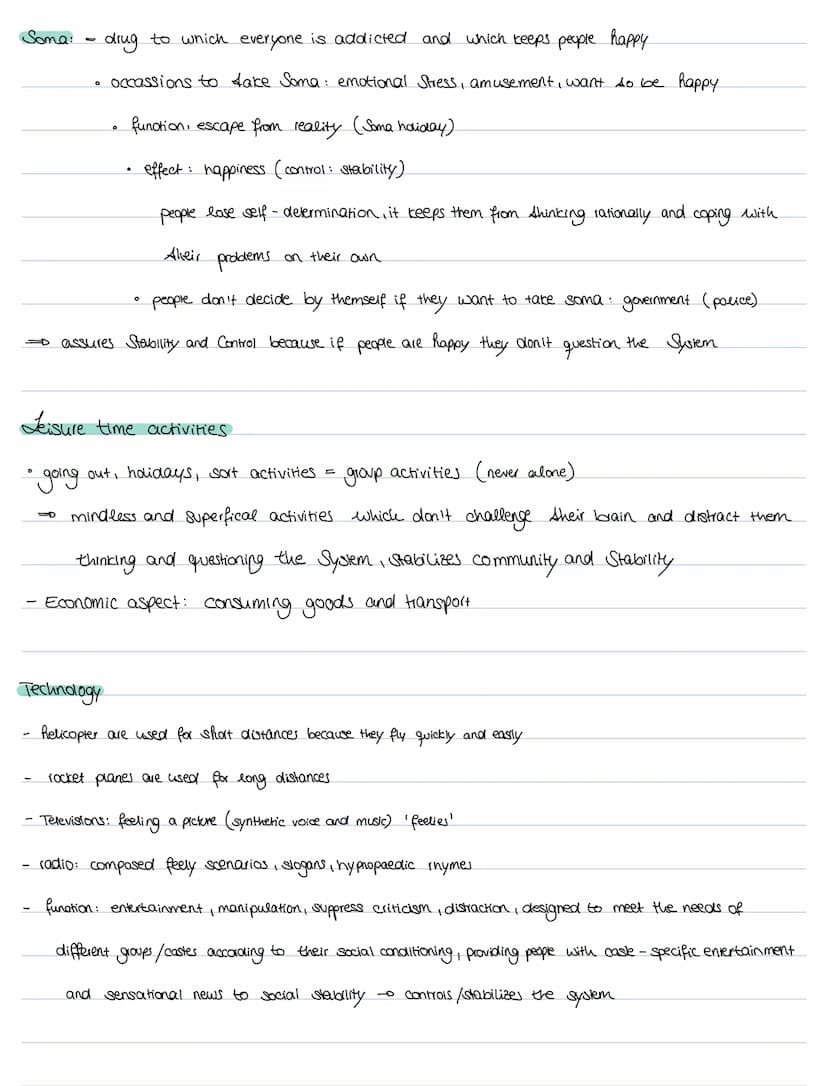 Soma: - drug to which everyone is addicted and which keeps people happy
• occassions to take Soma: emotional stress, amusement, want to be happy
• function: escape from reality (Soma holiday)
• effect: happiness (control: stability)
people lose self-determination, it keeps them from thinking rationally and coping with
their problems on their own
• people don't decide by themself if they want to take soma: government (police)
⇒ assures Stability and Control because if people are happy they don't question the System
Leisure time activities
• going out, holidays, sort activities = group activities (never alone)
⇒ mindless and superfical activities which don't challenge their brain and distract them
thinking and questioning the System, stabilizes community and Stability
- Economic aspect: consuming goods and transport
Technology
- helicopter are used for short distances because they fly quickly and easily
- rocket planes are used for long distances
- Televisions: feeling a picture (synthetic voice and music) 'feelies'
- radio: composed feely scenarios, slogans, hypnopaedic rhymes
- function: entertainment, manipulation, suppress criticism, distraction, designed to meet the needs of
different groups/castes according to their social conditioning, providing people with caste-specific enertainment
and sensational news to social stability → controls/stabilizes the system